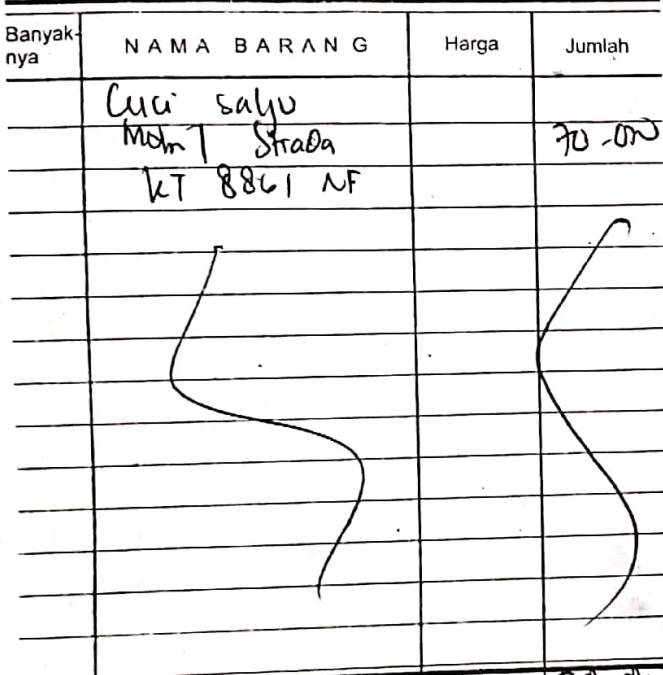 Banyak-
nya
NAMA BARANG
Harga
Jumlah
Cuci salju
Strada
70.000
KT 8861 NF